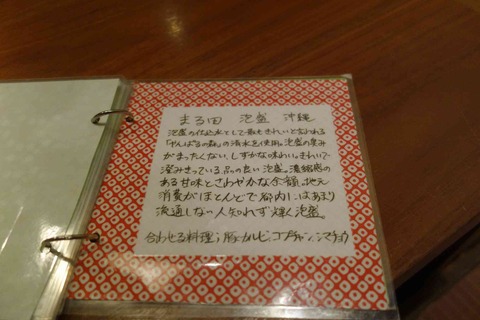 まる田 泡盛 沖縄
泡盛の仕込水として最もきれいと言われる
「やんばるの森」の清水を使用。泡盛の臭み
がまったくない、しずかな味わい。きれいで
澄みきっている品の良い泡盛。濃縮感
のある甘味とさわやかな余韻。地元
消費がほとんどで都内にはあまり
流通しない人知れず輝く泡盛。
合わせる料理;豚カルビ、コプチャン、シマチョウ